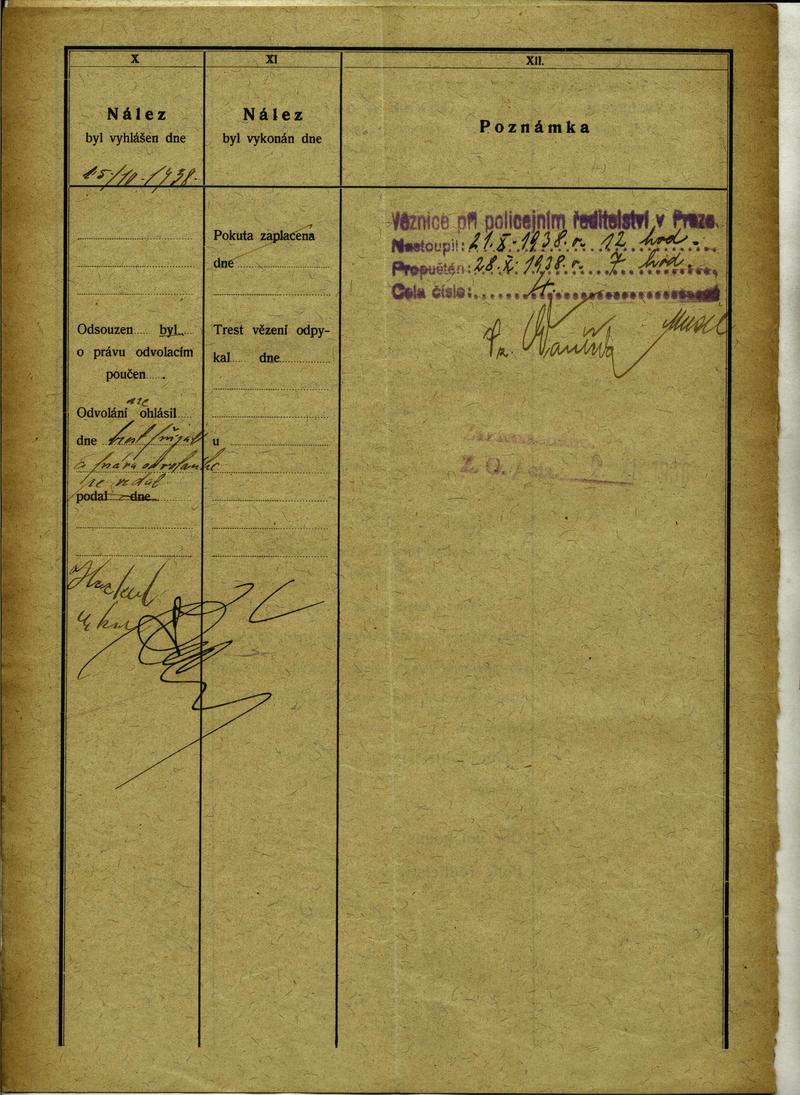 X
Nález
byl vyhlášen dne
15/10-1938-
Odsouzen byl
o právu odvolacím
poučen
Odvolání ne ohlásil
dne trest přijal
a práva odvolacího
se vzdal
podal dne
XI
Nález
byl vykonán dne
Pokuta zaplacena
dne
Trest vězení odpy-
kal dne
u
XII.
Poznámka
Věznice při policejním ředitelství v Praze.
Nastoupil: 21.X.1938. v. 12 hod.
Propuštěn: 28.X.1938. v. 7 hod.
Cela číslo: 4